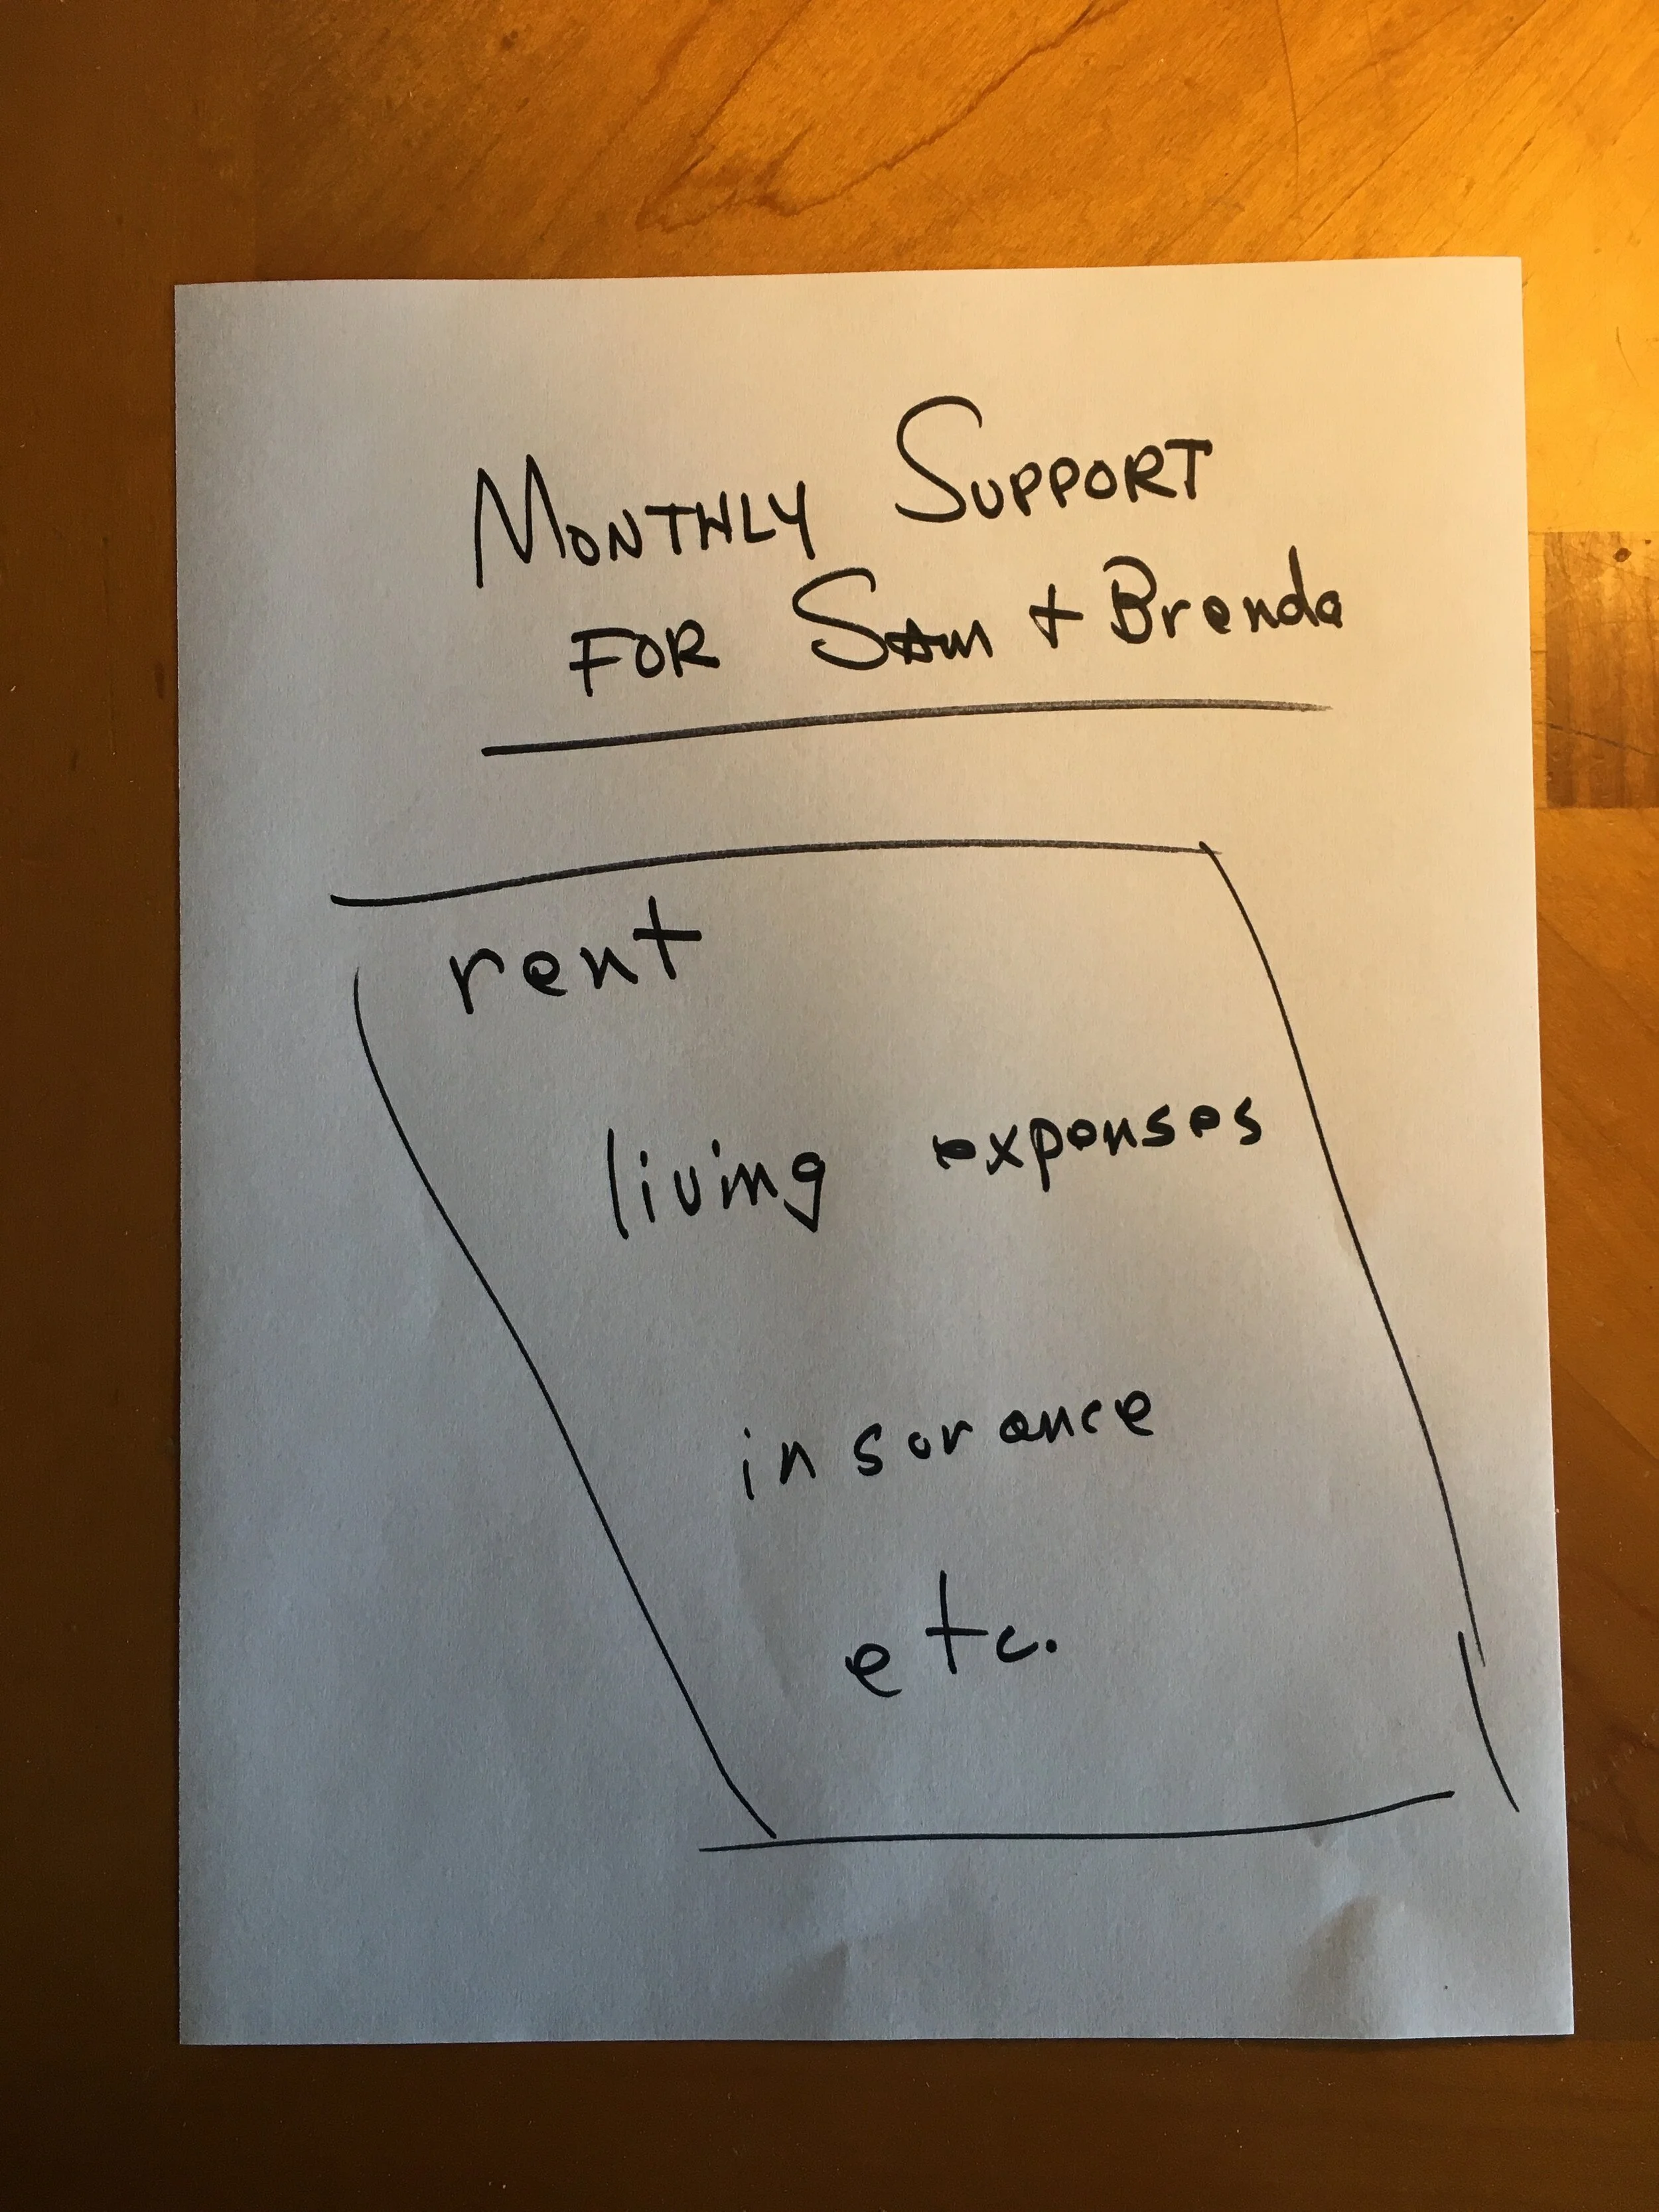 MONTHLY SUPPORT
FOR SAM + Brenda
rent
living expenses
insurance
etc.